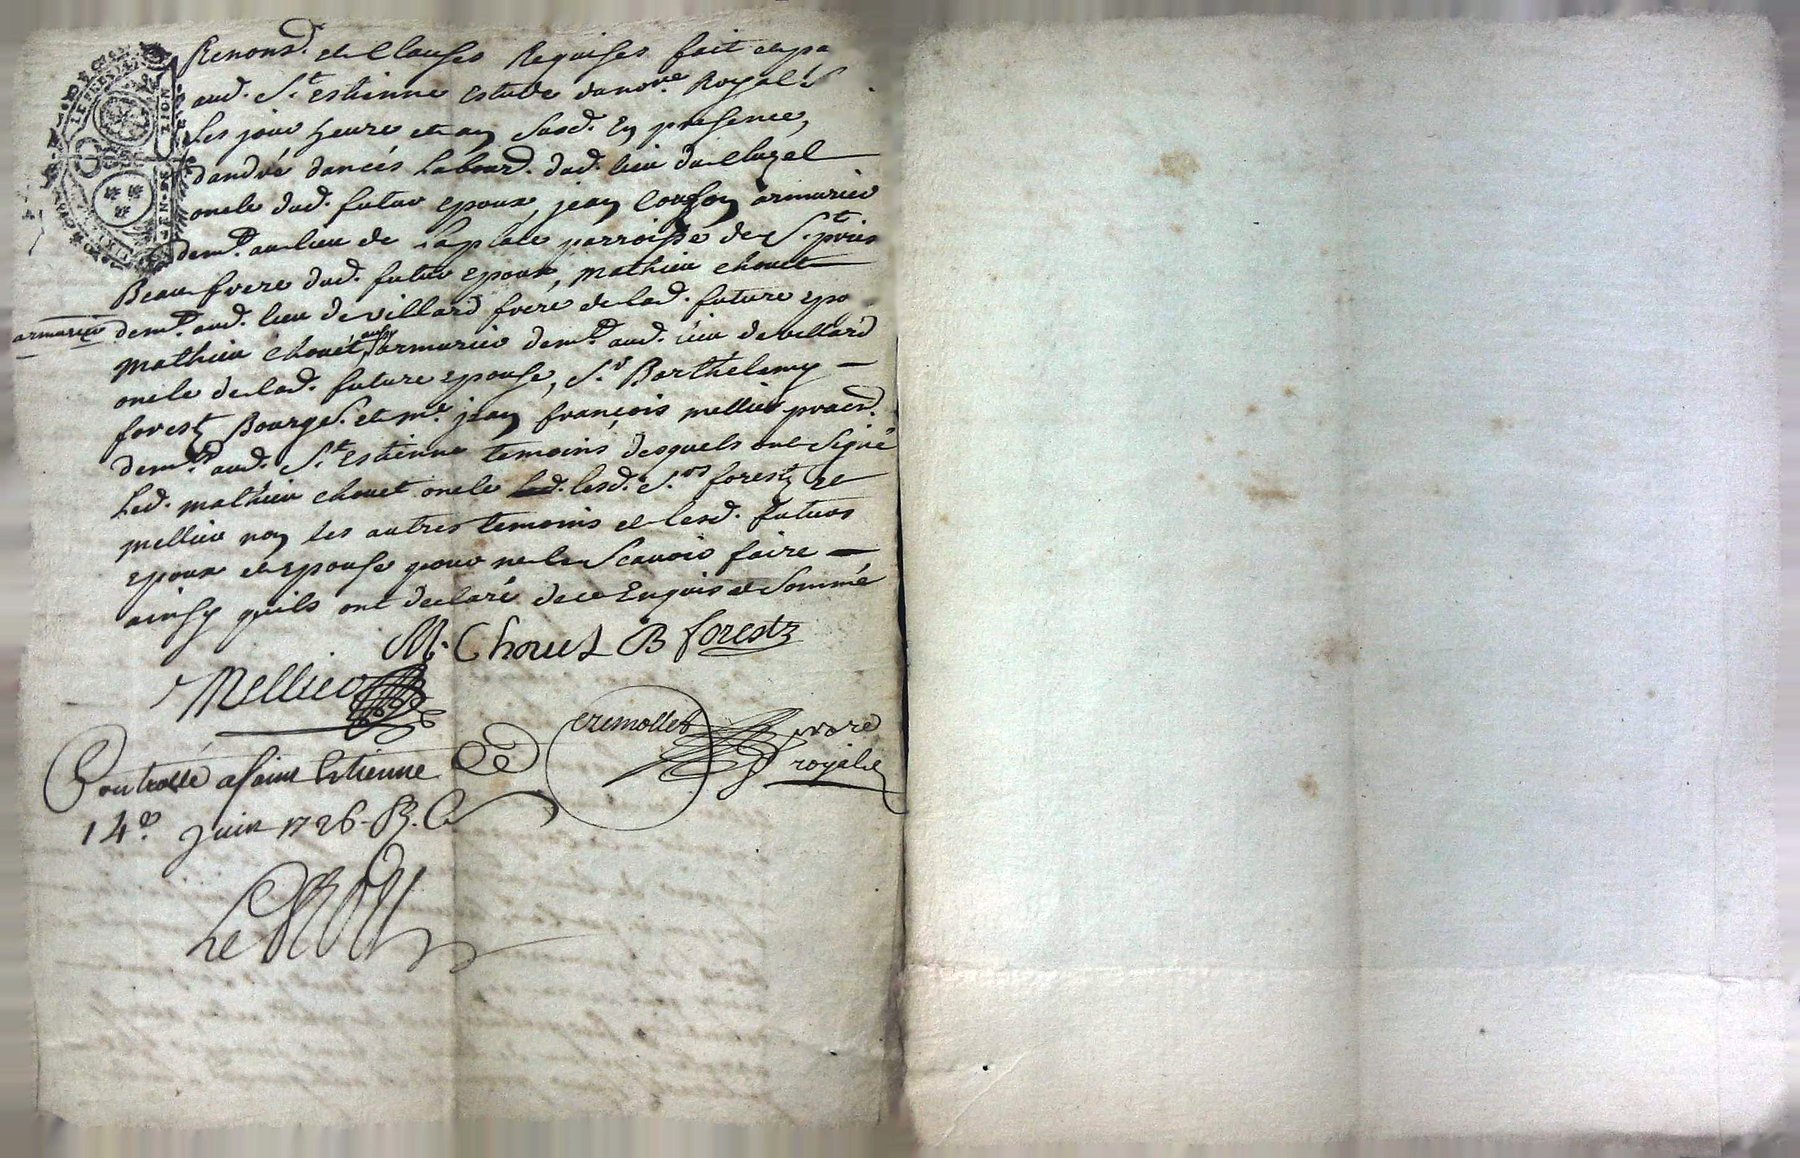 Renons.d et Clauses Requises fait et pa
aud. S.t estienne estude du no.re Royal s
Les jour heure et an susd. En presence,
d'andré dancés Labour.d dud. lieu du Cluzel
oncle dud. futur epoux, jean Couson armurier
dem.t au lieu de parroisse de S.t priés
Beau frere dud. futur epoux, mathieu chouet
armurier dem.t aud. lieu de villard frere de lad. future epo
mathieu chouet aussy armurier dem.t aud. lieu de villard
oncle de lad. future epouse, S.r Barthélemy
forest Bourge.s et m.e jean françois mellier praed.
dem.ts aud. S.t Estienne temoins desquels ont signé
Led. mathieu chouet oncle lesd. S.rs forest et
mellier non les autres temoins et lesd. futurs
epoux et epouse pour ne le scavoir faire
ainsy quils ont declaré de ce Enquis et sommé
M. Chouet B forest
Mellier
cremollet no.re
royal
Controllé a Saint Estienne Ce
14.e Juin 1726. R. 
Le